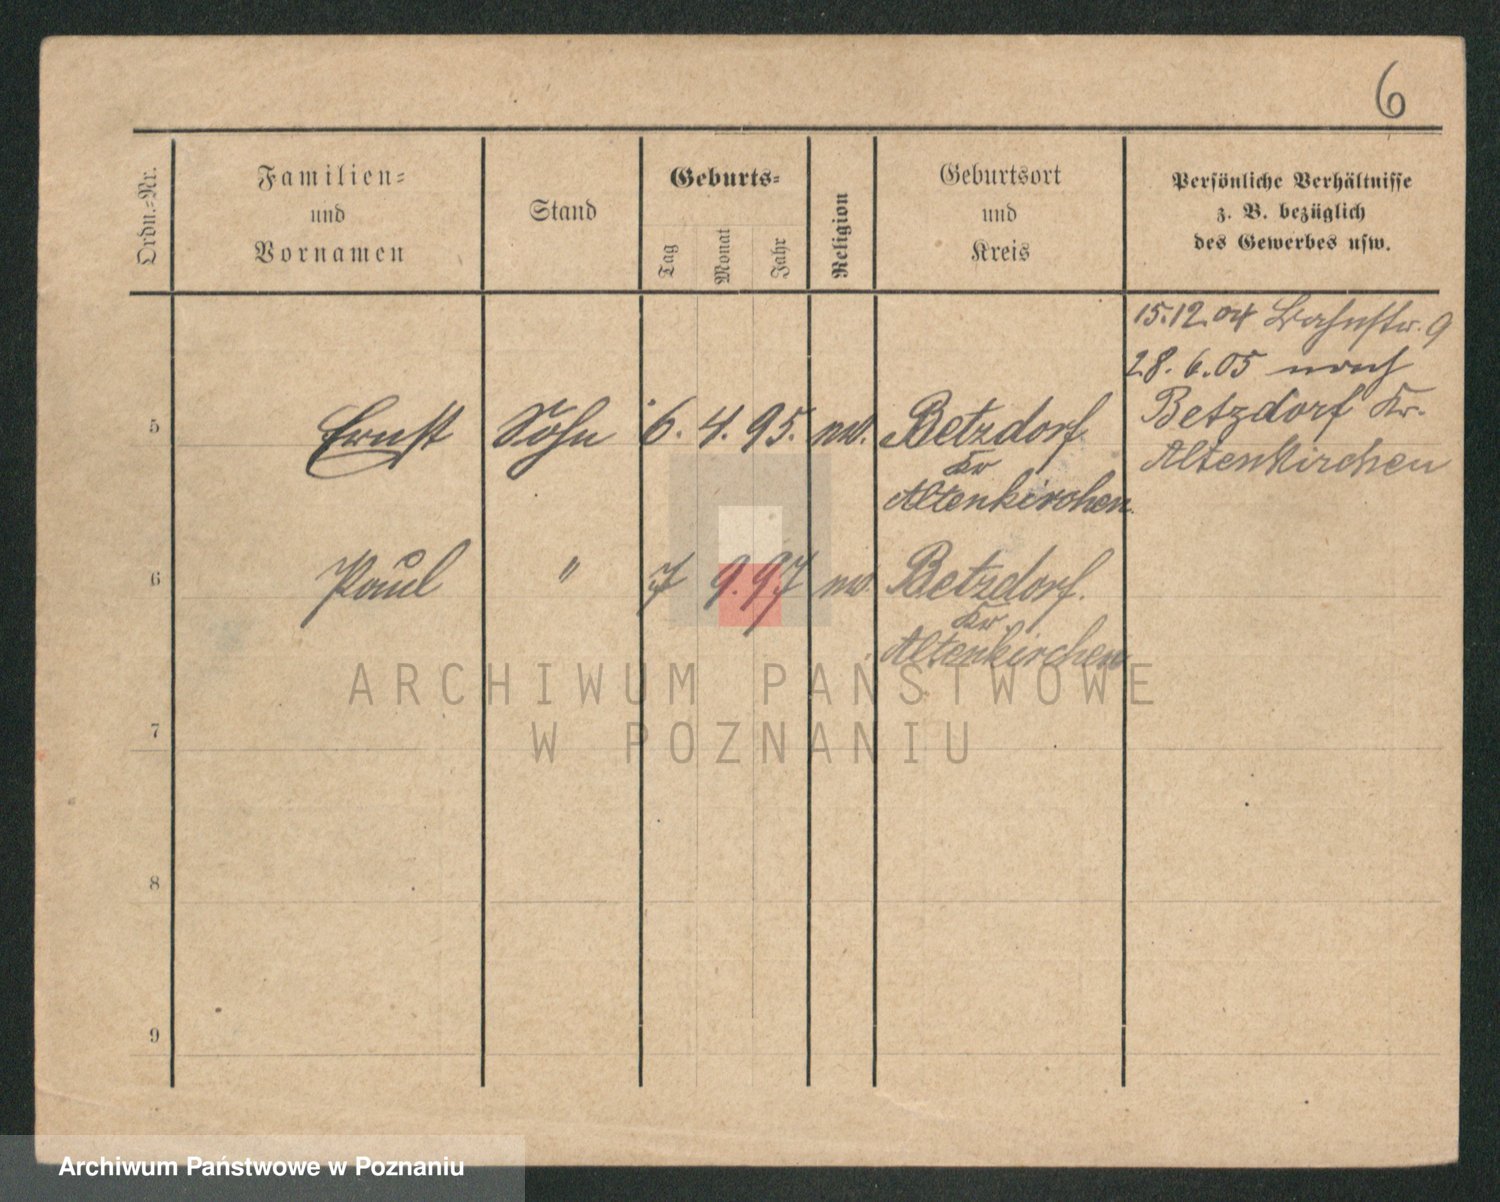 6
Ordn.-Nr.
Familien-
und
Vornamen
Stand
Geburts-
Tag
Monat
Jahr
Religion
Geburtsort
und
Kreis
Persönliche Verhältnisse
z. B. bezüglich
des Gewerbes usw.
15.12.04 Bahnstr. 9
28.6.05 nach
Betzdorf Kr.
Altenkirchen
5 Ernst Sohn 6. 4. 95. Betzdorf
Kr
Altenkirchen
6 Paul " 7 9. 97 Betzdorf.
Kr.
Altenkirchen
7
8
9
ARCHIWUM PAŃSTWOWE
W POZNANIU
Archiwum Państwowe w Poznaniu